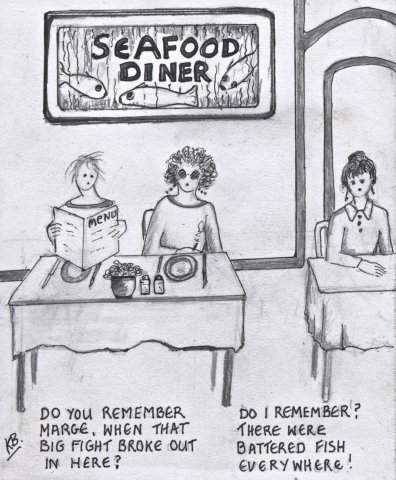 SEAFOOD
DINER
MENU
DO YOU REMEMBER
MARGE, WHEN THAT
BIG FIGHT BROKE OUT
IN HERE?
DO I REMEMBER?
THERE WERE
BATTERED FISH
EVERYWHERE!
KB.